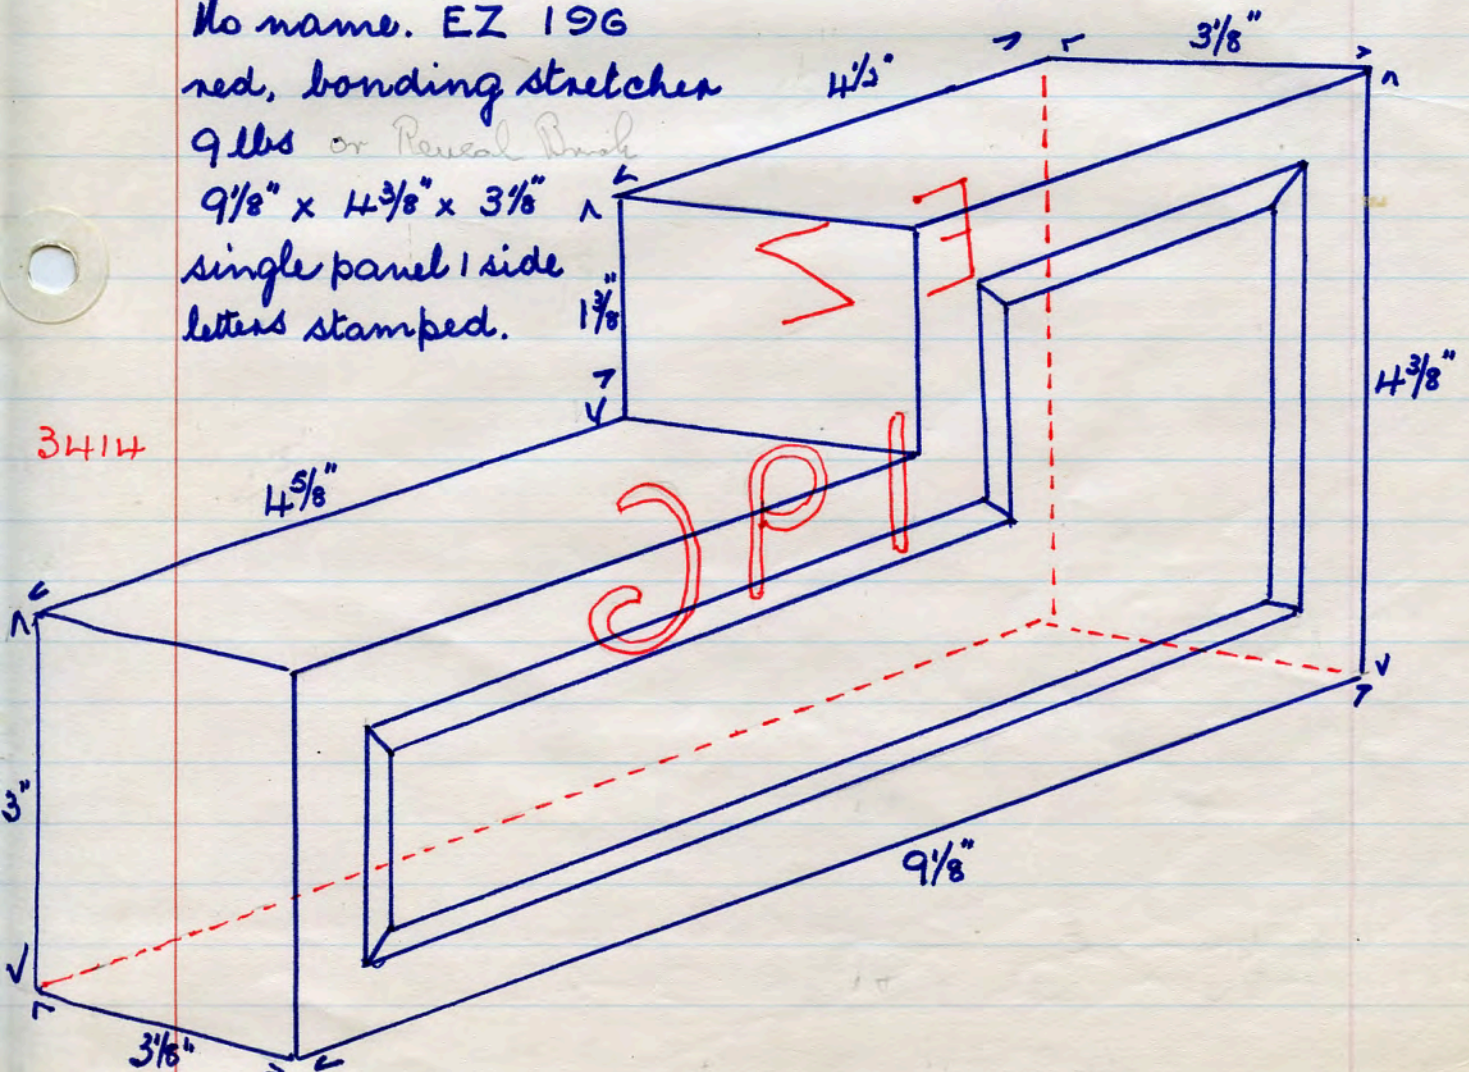 No name. EZ 196
red, bonding stretcher
9 lbs or Reveal Brick
9 1/8" x 4 3/8" x 3 1/8"
single panel 1 side
letters stamped.
4 1/2"
3 1/8"
1 3/8"
4 3/8"
3414
4 5/8"
JPI
3"
9 1/8"
3 1/8"